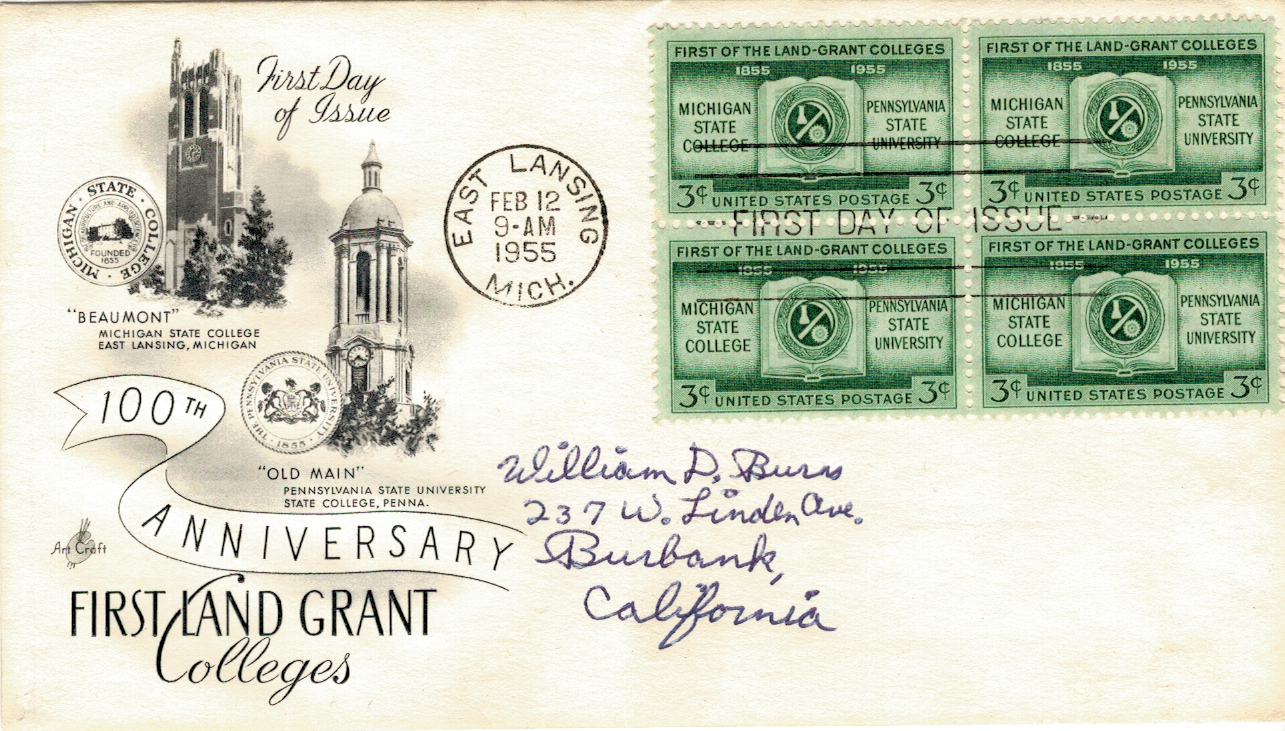 First Day
of Issue
MICHIGAN · STATE · COLLEGE ·
FOUNDED
1855
"BEAUMONT"
MICHIGAN STATE COLLEGE
EAST LANSING, MICHIGAN
THE PENNSYLVANIA STATE UNIVERSITY
· 1855 ·
"OLD MAIN"
PENNSYLVANIA STATE UNIVERSITY
STATE COLLEGE, PENNA.
100TH
ANNIVERSARY
Art Craft
FIRST LAND GRANT
Colleges
EAST LANSING
FEB 12
9-AM
1955
MICH.
FIRST OF THE LAND-GRANT COLLEGES
1855 1955
MICHIGAN STATE COLLEGE
PENNSYLVANIA STATE UNIVERSITY
3¢ UNITED STATES POSTAGE 3¢
FIRST OF THE LAND-GRANT COLLEGES
1855 1955
MICHIGAN STATE COLLEGE
PENNSYLVANIA STATE UNIVERSITY
3¢ UNITED STATES POSTAGE 3¢
FIRST DAY OF ISSUE
FIRST OF THE LAND-GRANT COLLEGES
1855 1955
MICHIGAN STATE COLLEGE
PENNSYLVANIA STATE UNIVERSITY
3¢ UNITED STATES POSTAGE 3¢
FIRST OF THE LAND-GRANT COLLEGES
1855 1955
MICHIGAN STATE COLLEGE
PENNSYLVANIA STATE UNIVERSITY
3¢ UNITED STATES POSTAGE 3¢
William D. Burns
237 W. Linden Ave.
Burbank,
California